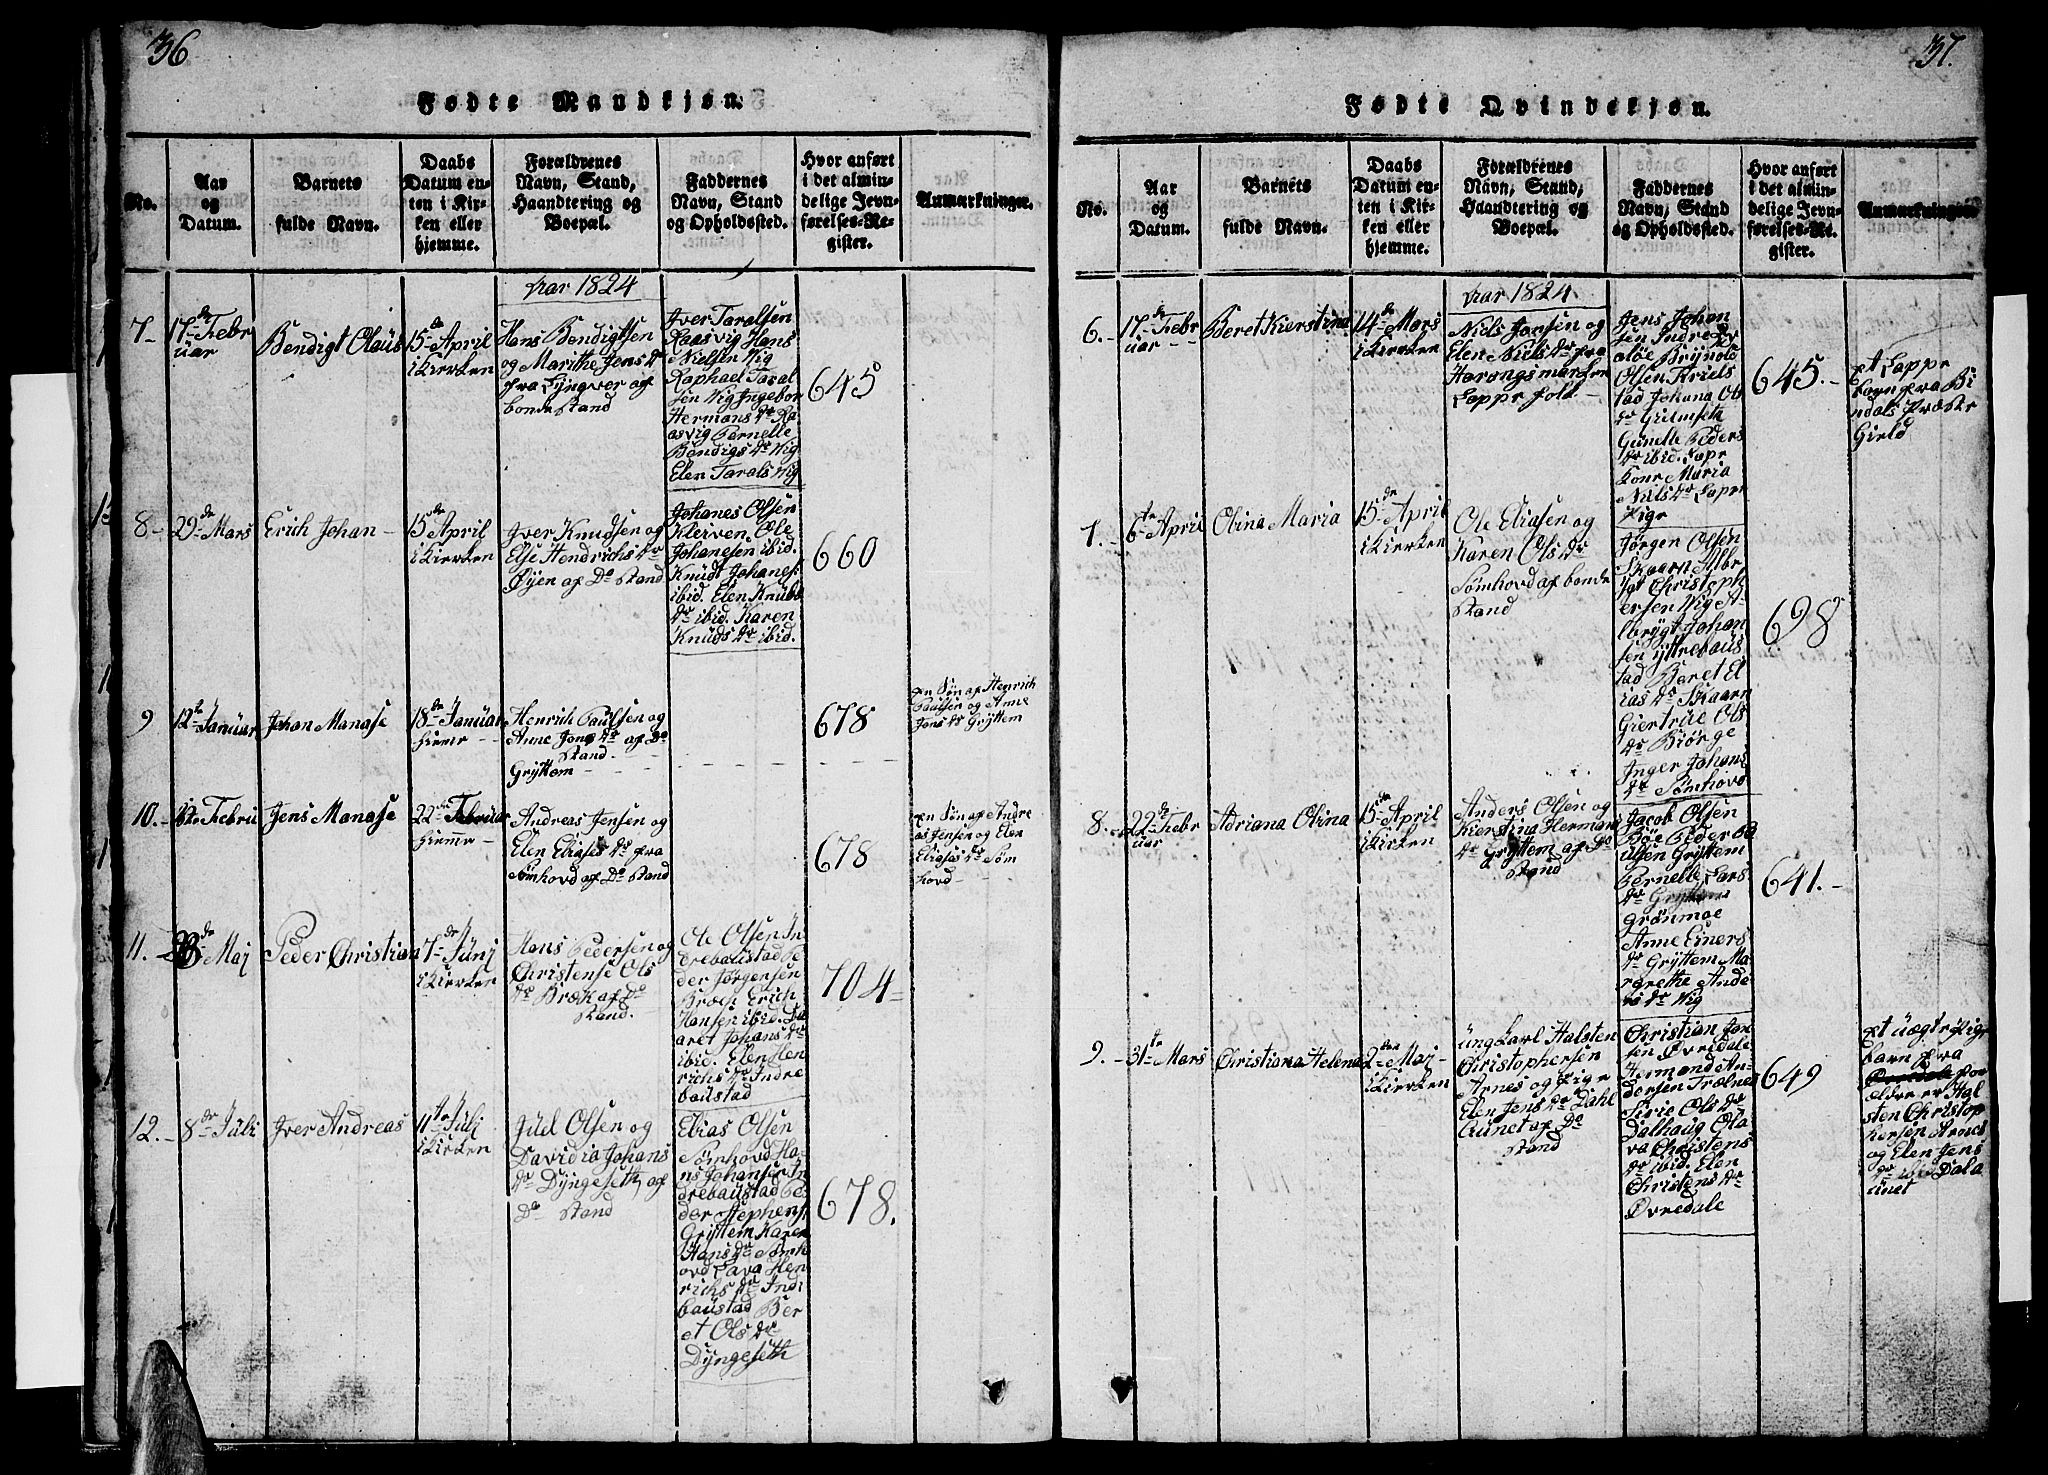 36
Fødte Mandkjøn.
No.
Aar
og
Datum.
Barnets
fulde Navn.
Daabs
Datum en-
ten i Kir-
ken eller
hjemme.
Forældrenes
Navn, Stand,
Haandtering og
Boepæl.
Faddernes
Navn, Stand
og Opholdssted.
Hvor anført
i det almin-
delige Jevn-
førelses-Re-
gister.
Anmærkninger.
Aar 1824
7-
17de Febr
uar
Bendigt Olaus
15de April
i Kierken
Hans Bendigtsen
og Marithe Jens dr
fra Lyngver af
bonde Stand
Iver Taralsen
Raasvig Hans
Nielsen Vig
Raphael Taral
sen Vig Ingebor
Hermans dr Ra
asvig Pernelle
Bendigs dr Vig
Elen Tarals Vig
645
8-
29de Mars
Erich Johan -
15de April
i Kierken
Iver Knudsen og
Else Hendrichs dr
Øyen af Do Stand
Johanes Olsen
Kleiven. Ole
Johanesen ibid.
Knudt Johanes.
ibid. Elen Knuds
dr ibid. Karen
Knuds dr ibid.
660
9
12te Januar
Johan Manase
18de Januar
hieme -
Henrich Paulsen og
Anne Jons dr af Do
Stand. -
Gryttem
678
en Søn af Henrich
Paulsen og Anne
Jons dr Gryttem
10.-
Febru
Jens Manase
22de Februar
hieme -
Andreas Jensen og
Elen Eliases dr fra
Sømhovd af Do Stand
678
en Søn af Andre
as Jensen og Elen
Eliases dr Søm
hovd -
11.
de Maj
Peder Christian
7de Junj
i Kierken
Hans Pedersen og
Christense Ols
dr Bræk af Do
Stand.
Ole Olsen In
drebaustad Pe
der Jørgensen
Broch Erich
Hansen ibid. Be
aret Johans dr
ibid. Elen Hen
richs dr Indre
baustad
704-
12.-
8de Juli
Iver Andreas
11te Julj
i Kierken
Juel Olsen og
Davidia Johans
dr Dyngeseth af
Do Stand
Elias Olsen
Sømhovd Ha-
ns Johansen In
drebaustad Pe
der Stephens.
Gryttem Karen
Hans dr Sømh
ovd Lava Hen
richs dr Indr
baustad Ber
et Ols dr
Dyngeseth
678.
37.
Fødte Qvindekjøn.
No.
Aar
og
Datum.
Barnets
fulde Navn.
Daabs
Datum en-
ten i Kir-
ken eller
hjemme.
Forældrenes
Navn, Stand,
Haandtering og
Boepæl.
Faddernes
Navn, Stand
og Opholdssted.
Hvor anført
i det almin-
delige Jevn-
førelses-Re-
gister.
Anmærkninger
Aar 1824
6.-
17de Febr
uar -
Beret Kierstina
14de Mars
i Kierken
Niels Jonsen og
Elen Niels dr fra
Harangsmarken
Lappe folk -
Jens Johan
sen Indre
aløe Brynild
Olsen
stad Johana Ols
dr Grimseth
Gunelle Peders
dr ibid. Lape
Kone Maria
Niels dr Lape
Pige
645.-
et Lappe
barn fra Bi
ndals Præste
Gield
7.-
6te April
Olina Maria
15de April
i Kierken
Ole Eliasen og
Karen Ols dr
Sømhovd af bonde
Stand
Jørgen Olsen
Skaarn Albr
igt Christoph
ersen Vig A-
lbrygt Johan
sen Yttrebaus
tad Beret El
ias dr Skaarn
Giertrue Ols
dr Biørge
Inger Johans
dr Sømhovd
698
8.
22de Febr
uar
Adriana Olina
15de April
i Kierken
Anders Olsen og
Kierstina Herman
dr Gryttem af Do
Stand
Jacob Olsen
Bøe Peder Pa
ulsen Gryttem
Pernelle Lars
dr
Grønmoe
Anne Einers
dr Gryttem Ma
rgrethe Ande
rs dr Vig
641.-
9.-
31te Mars
Christiana Helena
2den Maj -
i Kierken
Ungkarl Halsten
Christophersen
Arnes og Pige
Elen Jens dr Dahl
Aunet af Do
Stand
Christian Jen
sen Øvredale
Hermand An-
dersen Trælnes
Sirie Ols dr
Dalhaug Ola
va Christens
dr ibid. Elen
Christens dr
Øvredale
649
et uægte Pige
barn fra
for
ældre er Hal
sten Christop
hersen Arnes
og Elen Jens
dr ibid Dala
unet